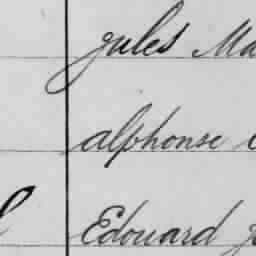 Jules Ma
alphonse
Edouard J